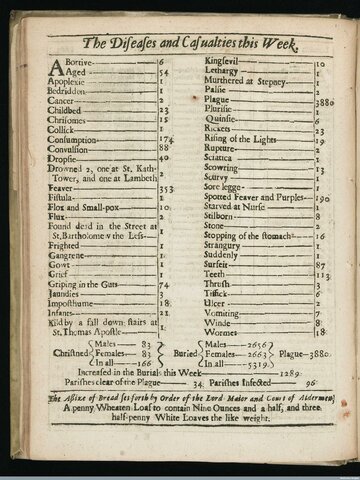 The Diseases and Casualties this Week.
Abortive 6
Aged 54
Apoplexie 1
Bedridden 1
Cancer 2
Childbed 23
Chrisomes 15
Collick 1
Consumption 174
Convulsion 88
Dropsie 40
Drowned 2, one at St. Kath.
Tower, and one at Lambeth 2
Feaver 353
Fistula 1
Flox and Small-pox 10
Flux 2
Found dead in the Street at
St. Bartholomew the Less 1
Frighted 1
Gangrene 1
Gowt 1
Grief 1
Griping in the Guts 74
Jaundies 3
Imposthume 18
Infants 21
Kild by a fall down stairs at
St. Thomas Apostle 1
Kingsevil 10
Lethargy 1
Murthered at Stepney 1
Palsie 2
Plague 3880
Plurisie 1
Quinsie 6
Rickets 23
Rising of the Lights 19
Rupture 2
Sciatica 1
Scowring 13
Scurvy 1
Sore legge 1
Spotted Feaver and Purples 190
Starved at Nurse 1
Stilborn 8
Stone 2
Stopping of the stomach 16
Strangury 1
Suddenly 1
Surfeit 87
Teeth 113
Thrush 3
Tissick 6
Ulcer 2
Vomiting 7
Winde 8
Wormes 18
Christned Males 83 Females 83 In all 166
Buried Males 2656 Females 2663 In all 5319
Plague 3880.
Increased in the Burials this Week 1289
Parishes clear of the Plague 34 Parishes Infected 96
The Assize of Bread set forth by Order of the Lord Maior and Court of Aldermen,
A penny Wheaten Loaf to contain Nine Ounces and a half, and three
half-penny White Loaves the like weight.